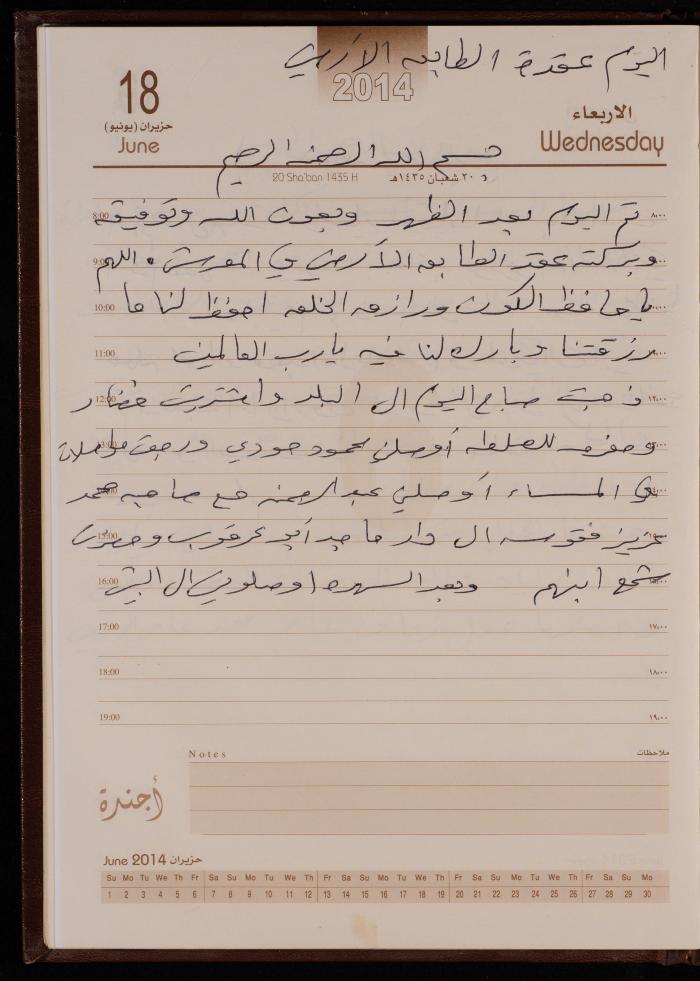 اليوم عقدة الطابق الأرضي
18
2014
حزيران (يونيو)
June
الاربعاء
Wednesday
بسم الله الرحمن الرحيم
20 Sha'ban 1435 H
٢٠ شعبان ١٤٣٥هـ
8:00 تم اليوم بعد الظهر وبعون الله وتوفيقه ٨،٠٠
9:00 وبركته عقد الطابق الأرضي في المفرش . اللهم
10:00 يا حافظ الكون ورازق الخلق احفظ لنا ما
11:00 رزقتنا وبارك لنا فيه يا رب العالمين
12:00 ذهبت صباح اليوم الى البلد واشتريت خضار ١٢،٠٠
أوصلني محمود جودي ورجعت مواصلات
في المساء أوصلني عبد الرحمن مع صاحبه محمد
15:00 عزيز فقوسه الى دار ماجد أبو عرقوب وحضرت
16:00 ابنهم وبعد السهره اوصلوني الى البيت
17:00 ١٧،٠٠
18:00 ١٨،٠٠
19:00 ١٩،٠٠
Notes ملاحظات
أجندة
June 2014 حزيران
Su Mo Tu We Th Fr Sa Su Mo Tu We Th Fr Sa Su Mo Tu We Th Fr Sa Su Mo Tu We Th Fr Sa Su Mo
1 2 3 4 5 6 7 8 9 10 11 12 13 14 15 16 17 18 19 20 21 22 23 24 25 26 27 28 29 30